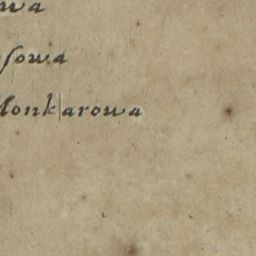 wa
sowa
lonkarowa